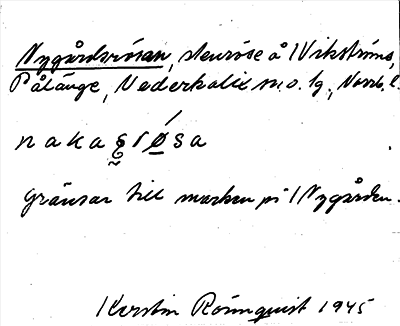 Nygårdsrösan, stenröse å Wikströms,
Pålänge, Nederkalix sn. o. tg, Norrb. l.
nakagrøsa
gränsar till marken på Nygården.
Kerstin Rönnquist 1945